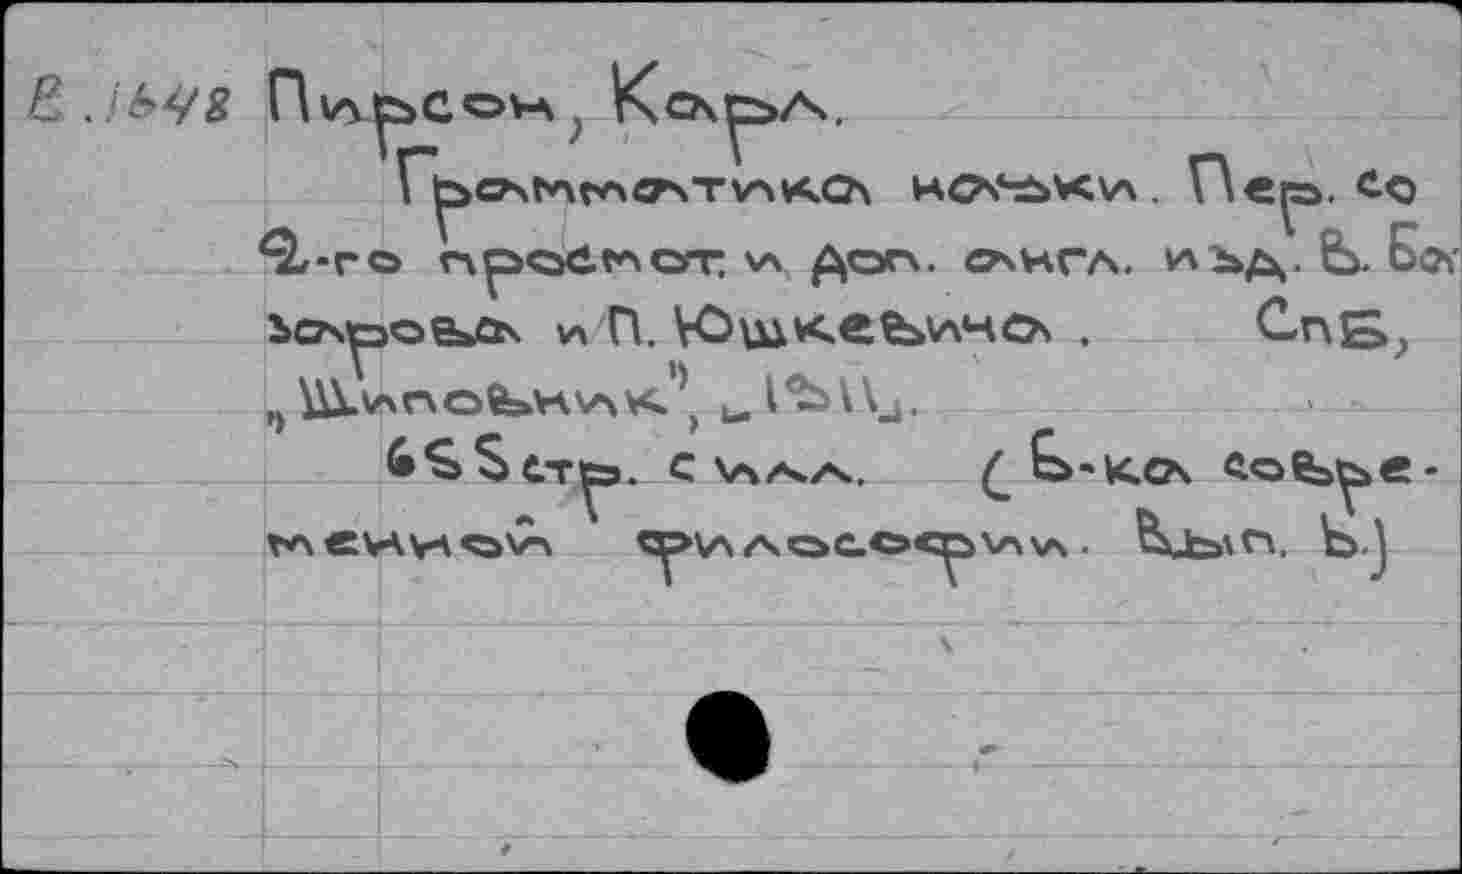 В.1648 Пирсон, Карл.
Грамматика науки. Пер. со
2-го просмот. и доп. англ. изд. В. Ба
зарова и П. Юшкевича. Спб,
„Шиповник", [1911].
655 стр. с илл. (Б-ка совре-
менной философии. Вып. 6.)